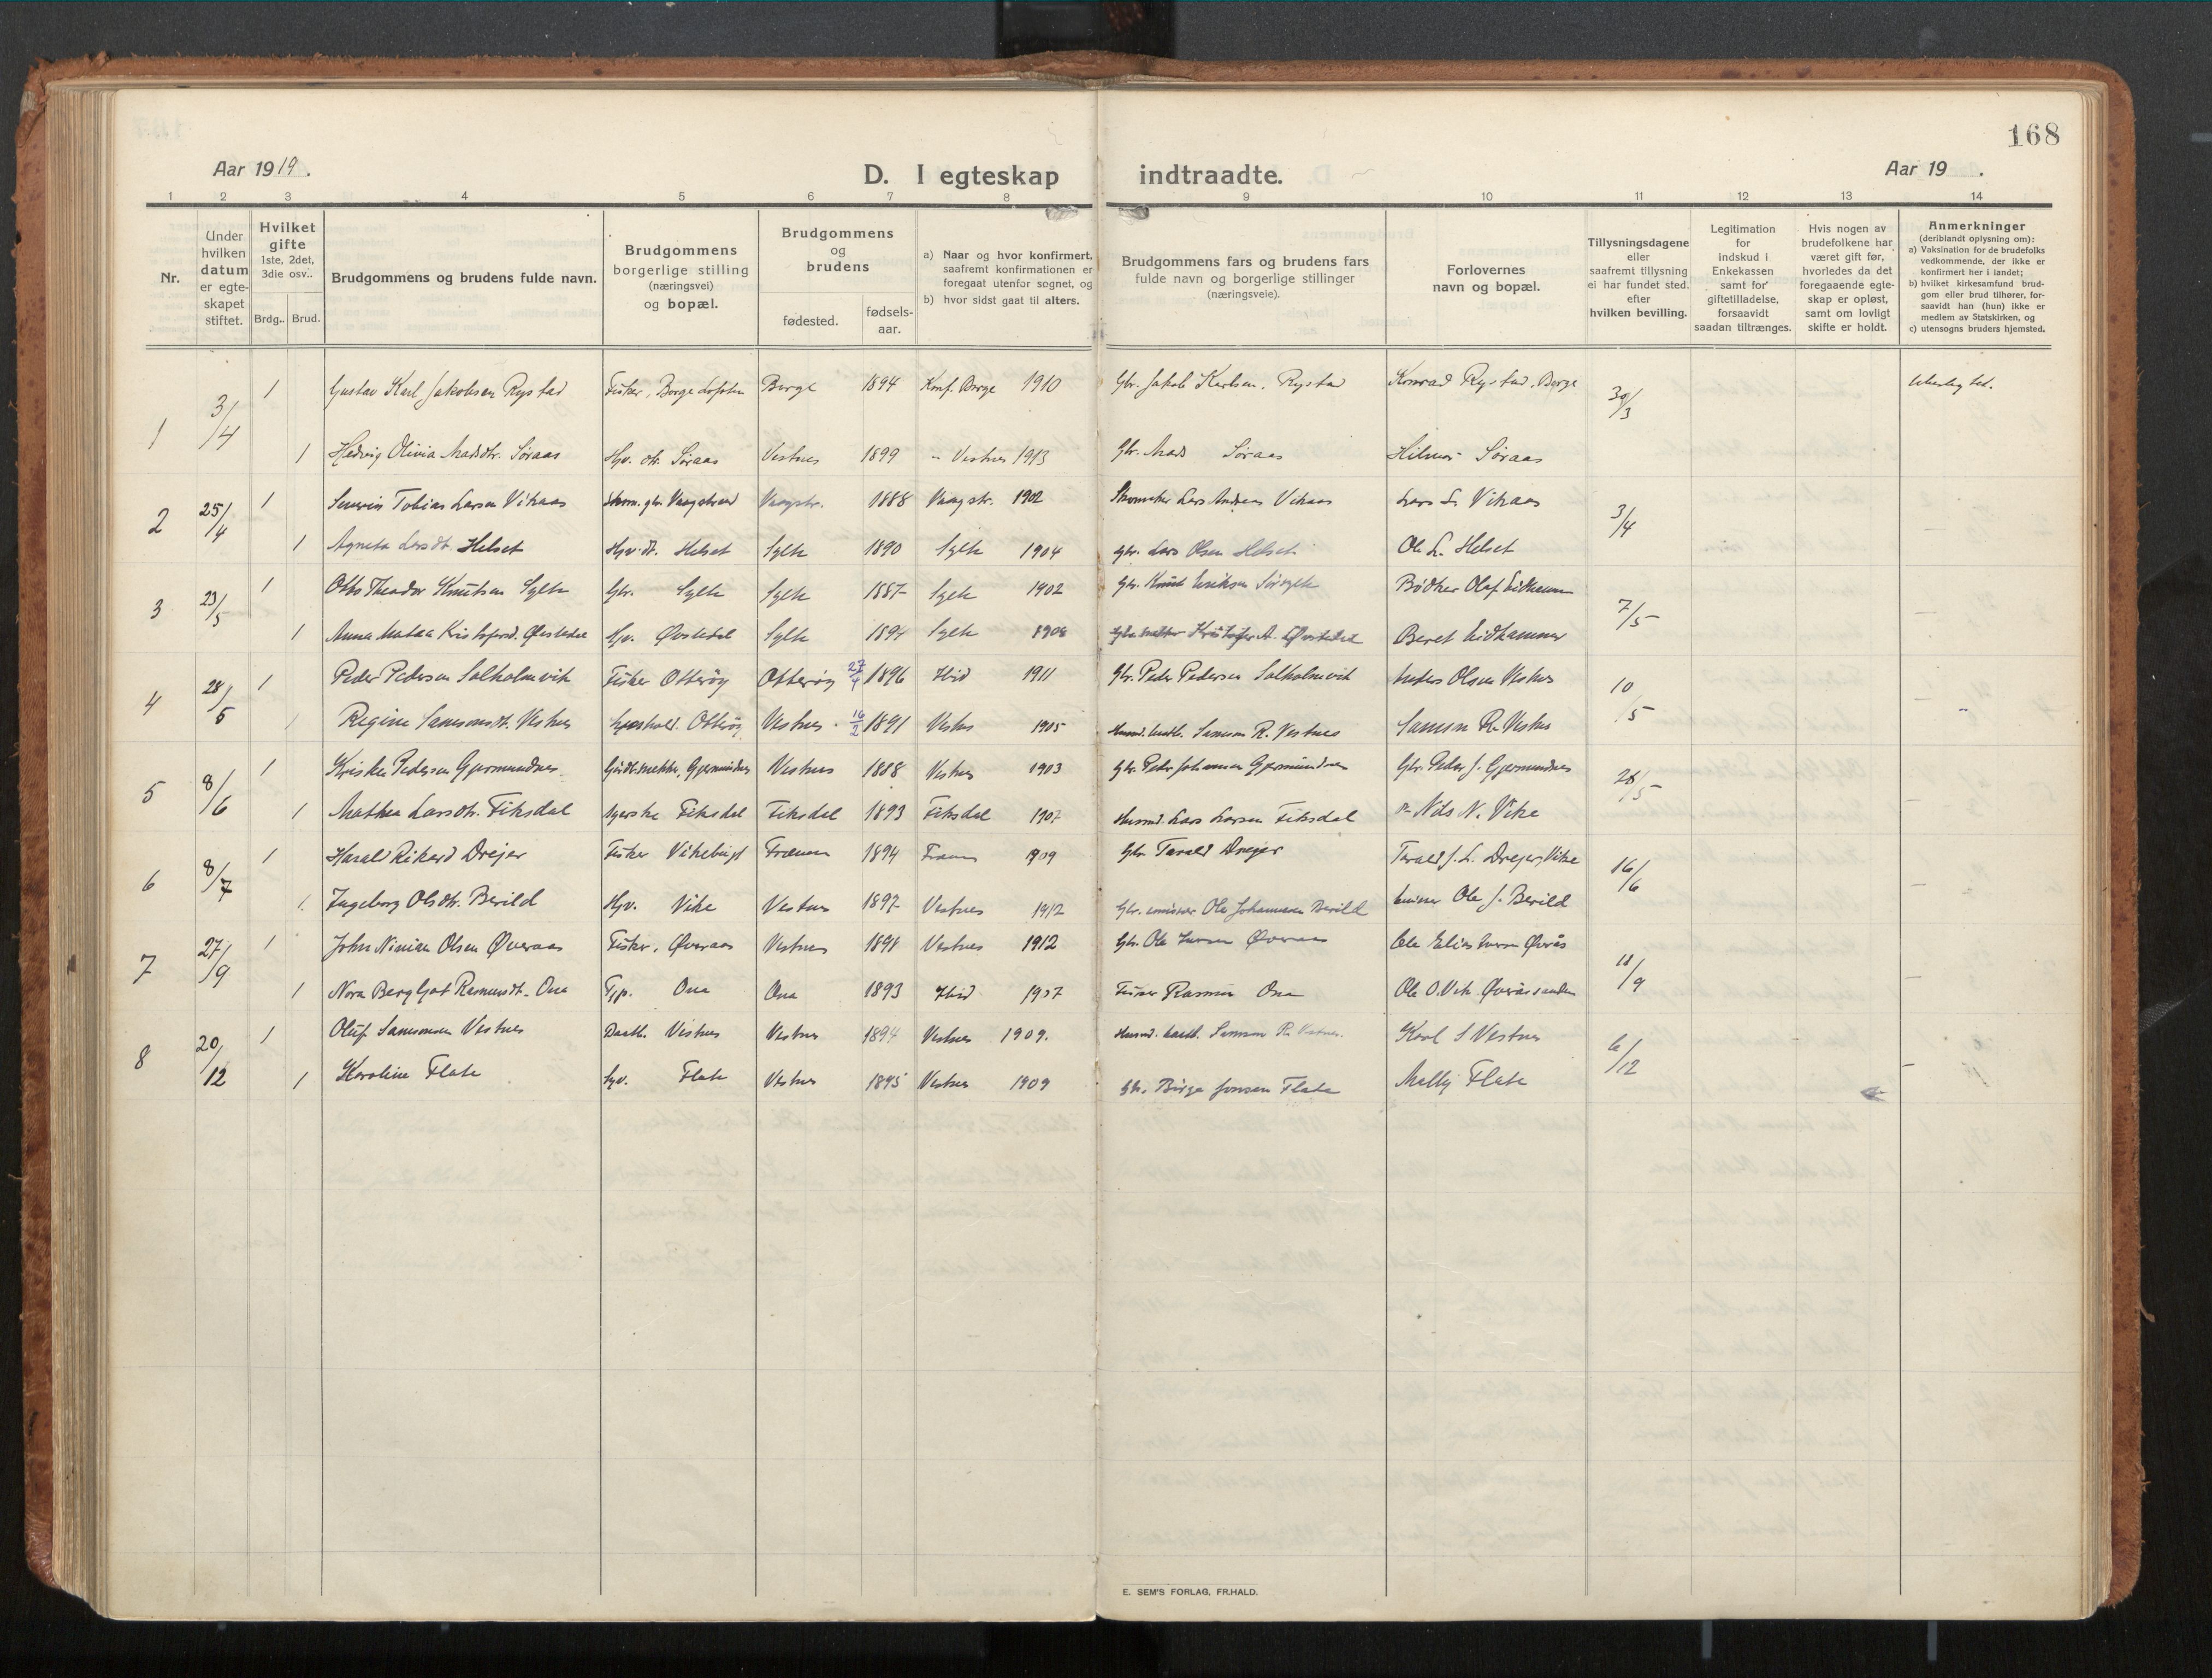 168
Aar 1919.
D. I egteskap indtraadte.
Aar 19 .
1 2 3 4 5 6 7 8 9 10 11 12 13 14
Nr.
Under hvilken datum er egte-skapet stiftet.
Hvilket gifte 1ste, 2det, 3die osv..
Brdg.. Brud.
Brudgommens og brudens fulde navn.
Brudgommens borgerlige stilling (næringsvei) og bopæl.
Brudgommens og brudens
fødested.
fødsels-aar.
a) Naar og hvor konfirmert, saafremt konfirmationen er foregaat utenfor sognet, og
b) hvor sidst gaat til alters.
Brudgommens fars og brudens fars fulde navn og borgerlige stillinger (næringsveie).
Forlovernes navn og bopæl.
Tillysningsdagene eller saafremt tillysning ei har fundet sted. efter hvilken bevilling.
Legitimation for indskud i Enkekassen samt for giftetilladelse, forsaavidt saadan tiltrænges.
Hvis nogen av brudefolkene har været gift før, hvorledes da det foregaaende egte-skap er opløst, samt om lovligt skifte er holdt.
Anmerkninger (deriblandt oplysning om):
a) Vaksination for de brudefolks vedkommende, der ikke er konfirmert her i landet;
b) hvilket kirkesamfund brud-gom eller brud tilhører, for-saavidt han (hun) ikke er medlem av Statskirken, og
c) utensogns bruders hjemsted.
1 3/4 1 Gustav Karl Jakobsen Rystad Fisker, Borge Lofoten Borge 1894 Konf. Borge 1910 Gbr. Jakob Karlsen, Rystad Konrad Rystad, Borge 30/3
1 Hedvig Olivia Madsdtr. Søraas Hjv. dtr. Søraas Vestnes 1899 " Vestnes 1913 Gbr. Mads Søraas Hilmar Søraas
2 25/4 1 Severin Tobias Larsen Vikaas Vaagstrand Vaagstr. 1888 Vaagstr. 1902 Skomaker Lars Andreas Vikaas Lars L. Vikaas 3/4
1 Agneta Larsdt. Helset Hjv. dt. Helset Sylte 1890 Sylte 1904 Gbr. Lars Olsen Helset Ole L. Helset
3 23/5 1 Otto Theodor Knutsen Sylte Gbr. Sylte Sylte 1887 Sylte 1902 Gbr. Knut Eriksen Bødker Olaf Eidhammer 7/5
1 Anna Hjv. Øvstedal Sylte Sylte 1908 Kristofer A. Øvstedal Beret Eidhammer
4 28/5 1 Peder Pedersen Solholmvik Fisker Otterøy Otterøy 27/4 1896 Ibid 1911 Gbr. Peder Pedersen Solholmvik Anders Olsen Vestnes 10/5
1 Regine Samsonsdt. Vestnes Otterøy Vestnes 16/2 1891 Vestnes 1905 Samson R. Vestnes Samson R. Vestnes
5 8/6 1 Pedersen Gjermundnes Gjermundnes Vestnes 1888 Vestnes 1903 Gbr. Peder Johannes Gjermundnes Gbr. Peder J. Gjermundnes 26/5
1 Mathea Larsdtr. Fiksdal Fiksdal Fiksdal 1893 Fiksdal 1907 Husmd. Lars Larsen Fiksdal Nils N. Vike
6 8/7 1 Harald Rikard Drejer Fisker Vikebugt Frænen 1894 Fræn 1909 Gbr. Tarald Drejer Tarald J. L. Drejer, Vike 16/6
1. Ingeborg Olsdtr. Berild Hjv. Vike Vestnes 1897 Vestnes 1912 Gbr. Ole Johannesen Berild Ole J. Berild
7 27/9 1 John Ninian Olsen Øveraas Fisker, Øveraas Vestnes 1898 Vestnes 1912 Gbr. Ole Iversen Øveraas Ole Elias Iversen Øverås 11/9
1 Nora Bergljot Rasmusdt. Ona Ona Ona 1893 Ibid 1907 Fisker Rasmus Ona Ole O. Vik Øveråssanden
8 20/12 1 Oluf Samsonsen Vestnes Baatb. Vestnes Vestnes 1894 Vestnes 1909. Husmd. baatb. Samson R. Vestnes. Karl S Vestnes 6/12
1 Karoline Flate Hjv. Flate Vestnes 1895 Vestnes 1909 Gbr. Birge Jonsen Flate Mally Flate
E. SEM'S FORLAG, FR.HALD.